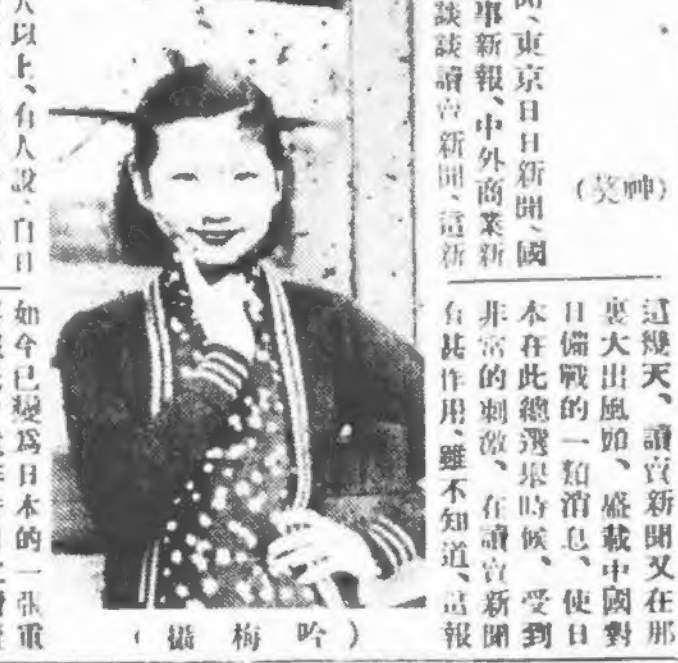 聞、東京日日新聞、國
事新報、中外商業新
談談讀賣新聞、這新
這幾天、讀賣新聞又在那
裏大出風頭、盛載中國對
日備戰的一類消息、使日
本在此總選舉時候、受到
非常的刺激、在讀賣新聞
有甚作用、雖不知道、這報
(攝梅吟)
人以上、有人說、白日
如今已變爲日本的一張重